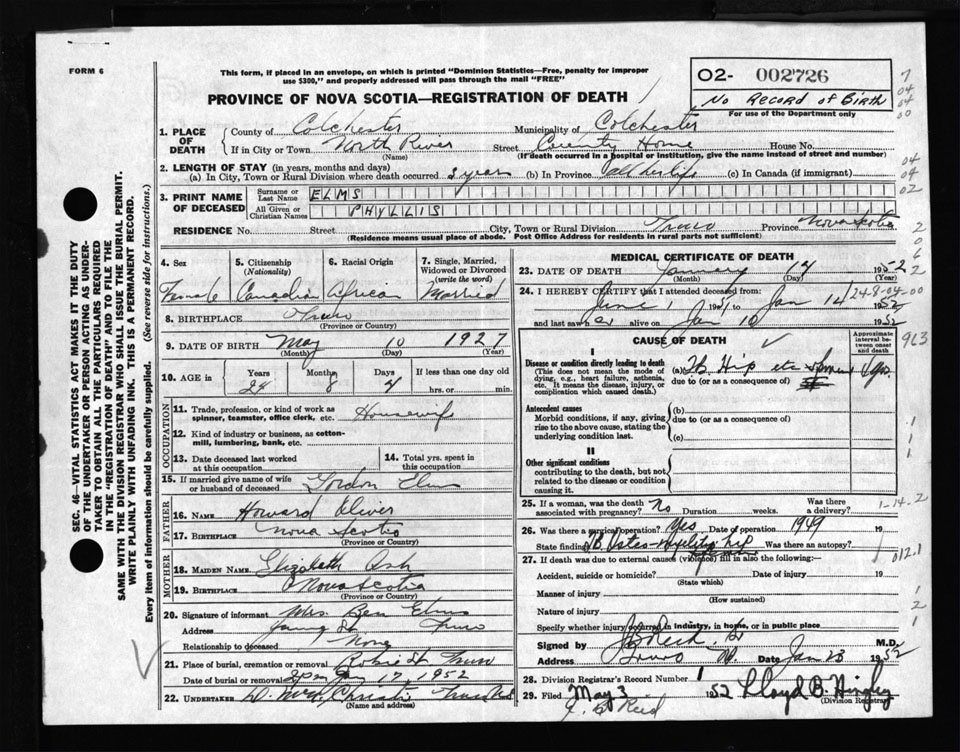 FORM 6
This form, if placed in an envelope, on which is printed "Dominion Statistics—Free, penalty for improper
use $300," and properly addressed will pass through the mail "FREE"
O2- 002726
No Record of Birth
For use of the Department only
PROVINCE OF NOVA SCOTIA—REGISTRATION OF DEATH
1. PLACE OF DEATH
County of Colchester Municipality of Colchester
If in City or Town North River Street County Home House No.
(Name) (If death occurred in a hospital or institution, give the name instead of street and number)
2. LENGTH OF STAY (in years, months and days)
(a) In City, Town or Rural Division where death occurred 3 years (b) In Province All her life (c) In Canada (if immigrant)
3. PRINT NAME OF DECEASED
Surname or Last Name ELMS
All Given or Christian Names PHYLLIS
RESIDENCE No. Street City, Town or Rural Division Truro Province Nova Scotia
(Residence means usual place of abode. Post Office Address for residents in rural parts not sufficient)
4. Sex Female
5. Citizenship (Nationality) Canadian
6. Racial Origin African
7. Single, Married, Widowed or Divorced (write the word) Married
8. BIRTHPLACE Truro
(Province or Country)
9. DATE OF BIRTH May 10 1927
(Month) (Day) (Year)
10. AGE in Years 24 Months 8 Days 4 If less than one day old
hrs. or min.
OCCUPATION
11. Trade, profession, or kind of work as spinner, teamster, office clerk, etc. Housewife
12. Kind of industry or business, as cotton-mill, lumbering, bank, etc.
13. Date deceased last worked at this occupation
14. Total yrs. spent in this occupation
15. If married give name of wife or husband of deceased Gordon Elms
FATHER
16. NAME Howard Oliver
17. BIRTHPLACE Nova Scotia
(Province or Country)
MOTHER
18. MAIDEN NAME Elizabeth Ash
19. BIRTHPLACE Nova Scotia
(Province or Country)
20. Signature of informant Mrs. Ben Elms
Address Young St Truro
Relationship to deceased None
21. Place of burial, cremation or removal Robie St Truro
Date of burial or removal Jan 17, 1952
22. UNDERTAKER
(Name and address)
MEDICAL CERTIFICATE OF DEATH
23. DATE OF DEATH January 14 1952
(Month) (Day) (Year)
24. I HEREBY CERTIFY that I attended deceased from:
June 1 1951 to Jan 14 1952
and last saw her alive on Jan 10 1952
248-04-00
CAUSE OF DEATH
Approximate interval between onset and death
I
Disease or condition directly leading to death
(This does not mean the mode of dying, e.g., heart failure, asthenia, etc. It means the disease, injury, or complication which caused death.)
(a) Tb Hip etc
due to (or as a consequence of)
Antecedent causes
Morbid conditions, if any, giving rise to the above cause, stating the underlying condition last.
(b)
due to (or as a consequence of)
(c)
II
Other significant conditions
contributing to the death, but not related to the disease or condition causing it.
25. If a woman, was the death associated with pregnancy? No Duration weeks. Was there a delivery?
26. Was there a surgical operation? Yes Date of operation 1949 19
State findings Was there an autopsy?
27. If death was due to external causes (violence) fill in also the following:—
Accident, suicide or homicide? Date of injury 19
(State which)
Manner of injury
(How sustained)
Nature of injury
Specify whether injury occurred in industry, in home, or in public place
Signed by M.D.
Address Truro NS Date Jan 23 1952
28. Division Registrar's Record Number 1
29. Filed May 3 1952 Lloyd B. Hingley
(Division Registrar)
J. B. Reid
SEC. 46—VITAL STATISTICS ACT MAKES IT THE DUTY
OF THE UNDERTAKER OR PERSON ACTING AS UNDER-
TAKER TO OBTAIN ALL THE PARTICULARS REQUIRED
IN THE "REGISTRATION OF DEATH" AND TO FILE THE
SAME WITH THE DIVISION REGISTRAR WHO SHALL ISSUE THE BURIAL PERMIT.
WRITE PLAINLY WITH UNFADING INK. THIS IS A PERMANENT RECORD.
Every item of information should be carefully supplied. (See reverse side for instructions.)